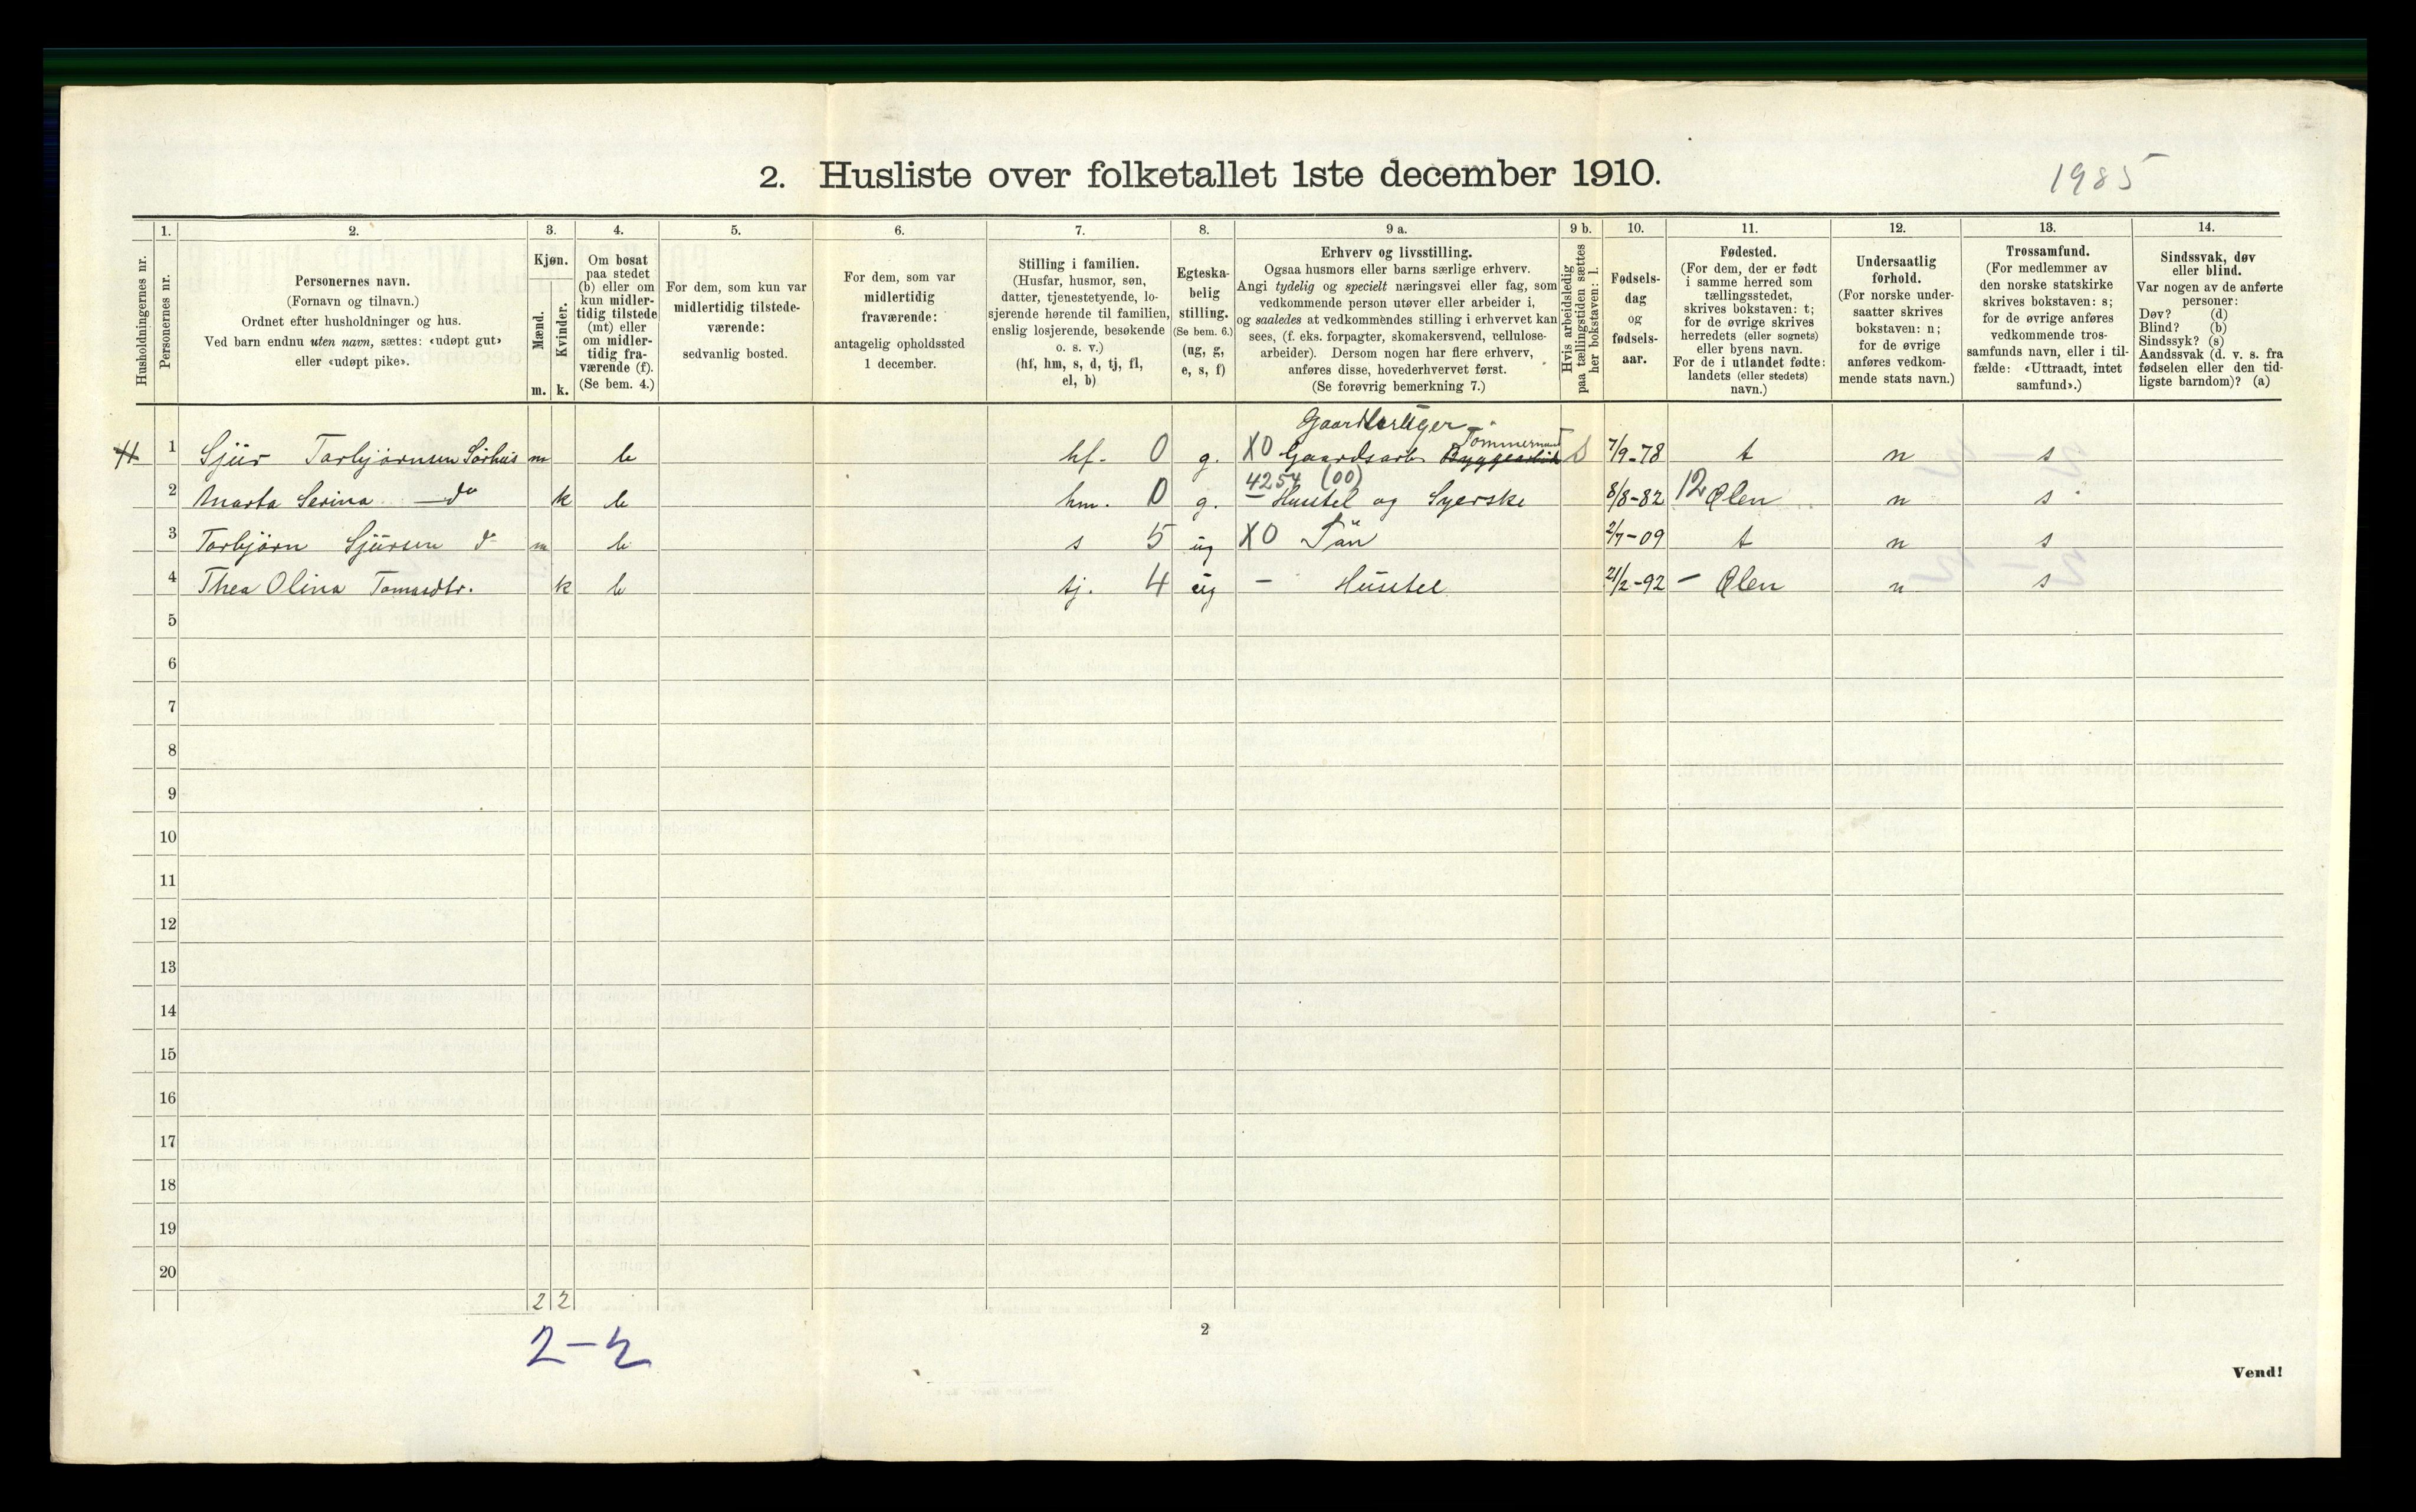 2. Husliste over folketallet 1ste december 1910.
1985
1. 2. 3. 4. 5. 6. 7. 8. 9 a. 9 b. 10. 11. 12. 13. 14.
Husholdningernes nr.
Personernes nr.
Personernes navn.
(Fornavn og tilnavn.)
Ordnet efter husholdninger og hus.
Ved barn endnu uten navn, sættes: «udøpt gut»
eller «udøpt pike».
Kjøn.
Mænd.
Kvinder.
m. k.
Om bosat
paa stedet
(b) eller om
kun midler-
tidig tilstede
(mt) eller
om midler-
tidig fra-
værende (f).
(Se bem. 4.)
For dem, som kun var
midlertidig tilstede-
værende:
sedvanlig bosted.
For dem, som var
midlertidig
fraværende:
antagelig opholdssted
1 december.
Stilling i familien.
(Husfar, husmor, søn,
datter, tjenestetyende, lo-
sjerende hørende til familien,
enslig losjerende, besøkende
o. s. v.)
(hf, hm, s, d, tj, fl,
el, b)
Egteska-
belig
stilling.
(Se bem. 6.)
(ug, g,
e, s, f)
Erhverv og livsstilling.
Ogsaa husmors eller barns særlige erhverv.
Angi tydelig og specielt næringsvei eller fag, som
vedkommende person utøver eller arbeider i,
og saaledes at vedkommendes stilling i erhvervet kan
sees, (f. eks. forpagter, skomakersvend, cellulose-
arbeider). Dersom nogen har flere erhverv,
anføres disse, hovederhvervet først.
(Se forøvrig bemerkning 7.)
Hvis arbeidsledig
paa tællingstiden sættes
her bokstaven: l.
Fødsels-
dag
og
fødsels-
aar.
Fødested.
(For dem, der er født
i samme herred som
tællingsstedet,
skrives bokstaven: t;
for de øvrige skrives
herredets (eller sognets)
eller byens navn.
For de i utlandet fødte:
landets (eller stedets)
navn.)
Undersaatlig
forhold.
(For norske under-
saatter skrives
bokstaven: n;
for de øvrige
anføres vedkom-
mende stats navn.)
Trossamfund.
(For medlemmer av
den norske statskirke
skrives bokstaven: s;
for de øvrige anføres
vedkommende tros-
samfunds navn, eller i til-
fælde: «Uttraadt, intet
samfund».)
Sindssvak, døv
eller blind.
Var nogen av de anførte
personer:
Døv? (d)
Blind? (b)
Sindssyk? (s)
Aandssvak (d. v. s. fra
fødselen eller den tid-
ligste barndom)? (a)
1 Sjur Torbjørnsen Sørhus m b hf. 0 g. X0 Gaardsarb. Tømmermand 7/9-78 t n s
4254 (00)
2 Marta Serina — do k b hm. 0 g. — Husstel og Syerske 8/8-82 12 Ølen n s
3 Torbjørn Sjursen do m b s 5 ug X0 Søn 2/7-09 t n s
4 Thea Olina Tomasdtr. k b tj. 4 ug — Husstel 21/2-92 — Ølen n s
5
6
7
8
9
10
11
12
13
14
15
16
17
18
19
20
2 2
2-2
2
Vend!